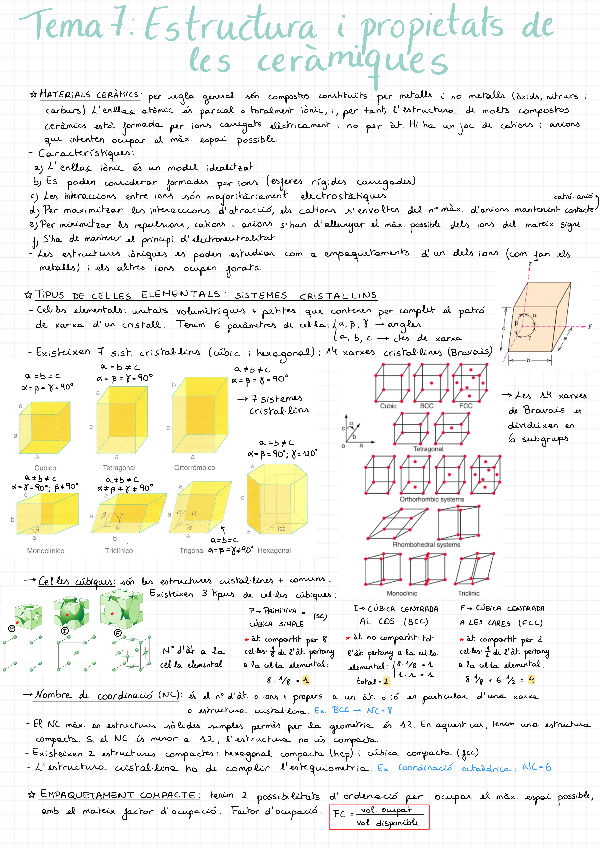 Tema 7: Estructura i propietats de
les ceràmiques
☆ MATERIALS CERÀMICS: per regla general són compostos constituïts per metalls i no metalls (òxids, nitrurs i
carburs) L'enllaç atòmic és parcial o totalment iònic, i, per tant, l'estructura de molts compostos
ceràmics està formada per ions carregats elèctricament i no per àt. Hi ha un joc de cations i anions
que intenten ocupar el màx. espai possible.
- Característiques:
a) L'enllaç iònic és un model idealitzat
b) Es poden considerar formades per ions (esferes rígides carregades)
c) Les interaccions entre ions són majoritàriament electrostàtiques
d) Per maximitzar les interaccions d'atracció, els cations s'envolten del nº màx. d'anions mantenint contacte catió-anió
e) Per minimitzar les repulsions, cations i anions s'han d'allunyar el màx possible dels ions del mateix signe
f) S'ha de mantenir el principi d'electroneutralitat
- Les estructures iòniques es poden estudiar com a empaquetaments d'un dels ions (com fan els
metalls) i els altres ions ocupen forats.
☆ TIPUS DE CEL·LES ELEMENTALS: SISTEMES CRISTAL·LINS
- Cel·les elementals: unitats volumètriques + petites que contenen per complet el patró
de xarxa d'un cristall. Tenim 6 paràmetres de cel·la: α, β, γ → angles
a, b, c → ctes de xarxa
- Existeixen 7 sist. cristal·lins (cúbic i hexagonal) i 14 xarxes cristal·lines (Bravais)
a=b=c
α=β=γ=90°
a=b≠c
α=β=γ=90°
a≠b≠c
α=β=γ=90°
→ 7 sistemes
cristal·lins
Cúbico
Tetragonal
Ortorrómbico
a≠b≠c
α=γ=90°; β≠90°
a≠b≠c
α≠β≠γ≠90°
a=b≠c
α=β=90°; γ=120°
a=b=c
α=β=γ≠90°
Monoclínico
Triclínico
Trigonal
Hexagonal
Cubic
BCC
FCC
Tetragonal
Orthorhombic systems
Rhombohedral systems
Monoclinic
Triclinic
→ Les 14 xarxes
de Bravais es
divideixen en
6 subgrups
→ Cel·les cúbiques: són les estructures cristal·lines + comuns.
Existeixen 3 tipus de cel·les cúbiques:
P → PRIMITIVA =
CÚBICA SIMPLE (SC)
* àt compartit per 8
cel·les: 1/8 de l'àt. pertany
a la cel·la elemental:
8 · 1/8 = 1
I → CÚBICA CENTRADA
AL COS (BCC)
* àt no compartit: tot
l'àt pertany a la cel·la
elemental: 8 · 1/8 = 1
1 · 1 = 1
total = 2
F → CÚBICA CENTRADA
A LES CARES (FCC)
* àt compartit per 2
cel·les: 1/2 de l'àt. pertany
a la cel·la elemental:
8 · 1/8 + 6 · 1/2 = 4
Nº d'àt a la
cel·la elemental
→ Nombre de coordinació (NC): és el nº d'àt o ions + propers a un àt. o ió en particular d'una xarxa
o estructura cristal·lina. Ex: BCC → NC=8
- El NC màx. en estructures sòlides simples permès per la geometria és 12. En aquest cas, tenim una estructura
compacta. Si el NC és menor a 12, l'estructura no és compacta.
- Existeixen 2 estructures compactes: hexagonal compacta (hcp) i cúbica compacta (fcc)
- L'estructura cristal·lina ha de complir l'estequiometria. Ex: Coordinació octaèdrica: NC=6
☆ EMPAQUETAMENT COMPACTE: tenim 2 possibilitats d'ordenació per ocupar el màx. espai possible,
amb el mateix factor d'ocupació. Factor d'ocupació: FC = vol. ocupat
vol disponible